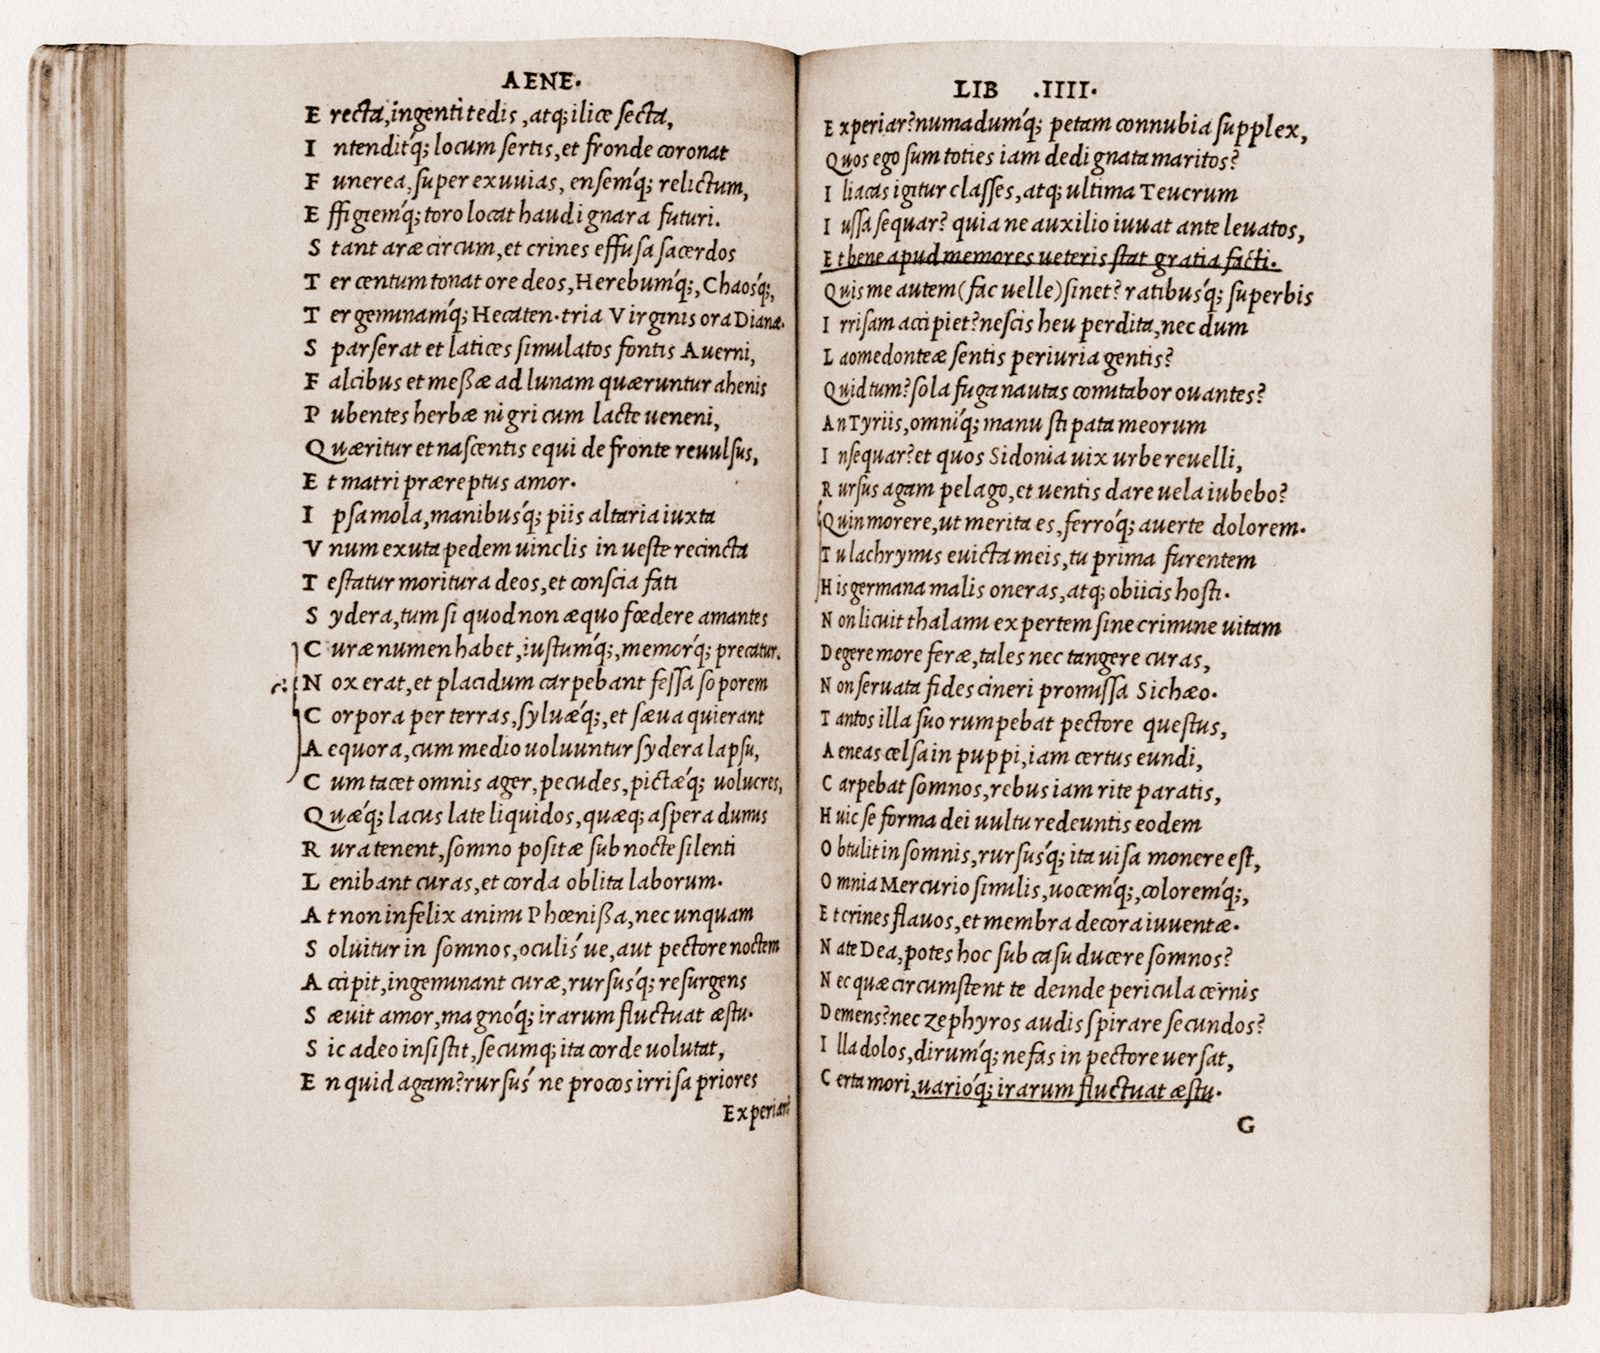 AENE.
E recta, ingenti tedis, atq; ilice secta,
I ntendit'q; locum sertis, et fronde coronat
F unerea, super exuuias, ensem'q; relictum,
E ffigiem'q; toro locat haud ignara futuri.
S tant aræ circum, et crines effusa sacerdos
T er centum tonat ore deos, Herebum'q;, Chaos'q;,
T ergeminam'q; Hecaten. tria Virginis ora Dianæ.
S parserat et latices simulatos fontis Auerni,
F alcibus et meßæ ad lunam quæruntur ahenis
P ubentes herbæ nigri cum lacte ueneni,
Q uæritur et nascentis equi de fronte reuulsus,
E t matri præreptus amor.
I psa mola, manibus'q; piis altaria iuxta
V num exuta pedem uinclis in ueste recincta
T estatur moritura deos, et conscia fati
S ydera, tum si quod non æquo fœdere amantes
C uræ numen habet, iustum'q;, memor'q; precatur.
N ox erat, et placidum carpebant fessa soporem
C orpora per terras, syluæ'q;, et sæua quierant
A equora, cum medio uoluuntur sydera lapsu,
C um tacet omnis ager, pecudes, pictæ'q; uolucres,
Q uæ'q; lacus late liquidos, quæq; aspera dumis
R ura tenent, somno positæ sub nocte silenti
L enibant curas, et corda oblita laborum.
A t non infelix animi Phœnißa, nec unquam
S oluitur in somnos, oculis'ue, aut pectore noctem
A ccipit, ingeminant curæ, rursus'q; resurgens
S æuit amor, magno'q; irarum fluctuat æstu.
S ic adeo insistit, secumq; ita corde uolutat,
E n quid agam? rursus' ne procos irrisa priores
Experiar?
LIB .IIII.
E xperiar? numadum'q; petam connubia supplex,
Quos ego sum toties iam dedignata maritos?
I liacas igitur classes, atq; ultima Teucrum
I ussa sequar? quia ne auxilio iuuat ante leuatos,
E t bene apud memores ueteris stat gratia facti.
Quis me autem (fac uelle) sinet? ratibus'q; superbis
I rrisam accipiet? nescis heu perdita, nec dum
L aomedonteæ sentis periuria gentis?
Quid tum? sola fuga nautas comitabor ouantes?
A n Tyriis, omni'q; manu stipata meorum
I nsequar? et quos Sidonia uix urbe reuelli,
R ursus agam pelago, et uentis dare uela iubebo?
Quin morere, ut merita es, ferro'q; auerte dolorem.
T u lachrymis euicta meis, tu prima furentem
H is germana malis oneras, atq; obiicis hosti.
N on licuit thalami expertem sine crimine uitam
D egere more feræ, tales nec tangere curas,
N on seruata fides cineri promissa Sichæo.
T antos illa suo rumpebat pectore questus,
A eneas celsa in puppi, iam certus eundi,
C arpebat somnos, rebus iam rite paratis,
H uic se forma dei uultu redeuntis eodem
O btulit in somnis, rursus'q; ita uisa monere est,
O mnia Mercurio similis, uocem'q;, colorem'q;,
E t crines flauos, et membra decora iuuentæ.
N ate Dea, potes hoc sub casu ducere somnos?
N ec quæ circumstent te deinde pericula cernis
D emens? nec zephyros audis spirare secundos?
I lla dolos, dirum'q; nefas in pectore uersat,
C erta mori, uario'q; irarum fluctuat æstu.
G